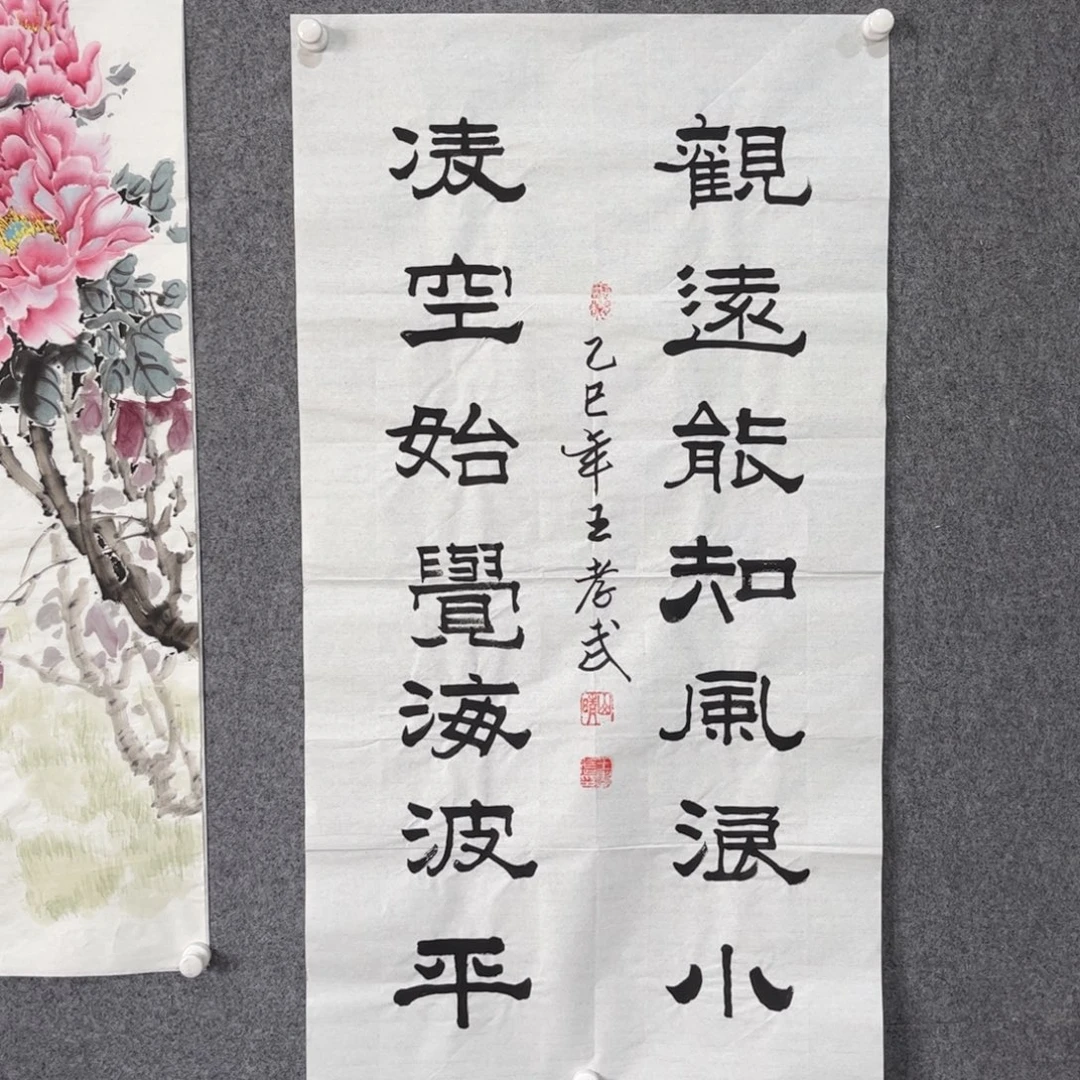 觀遠能知風浪小
凌空始覺海波平
乙巳年王孝武